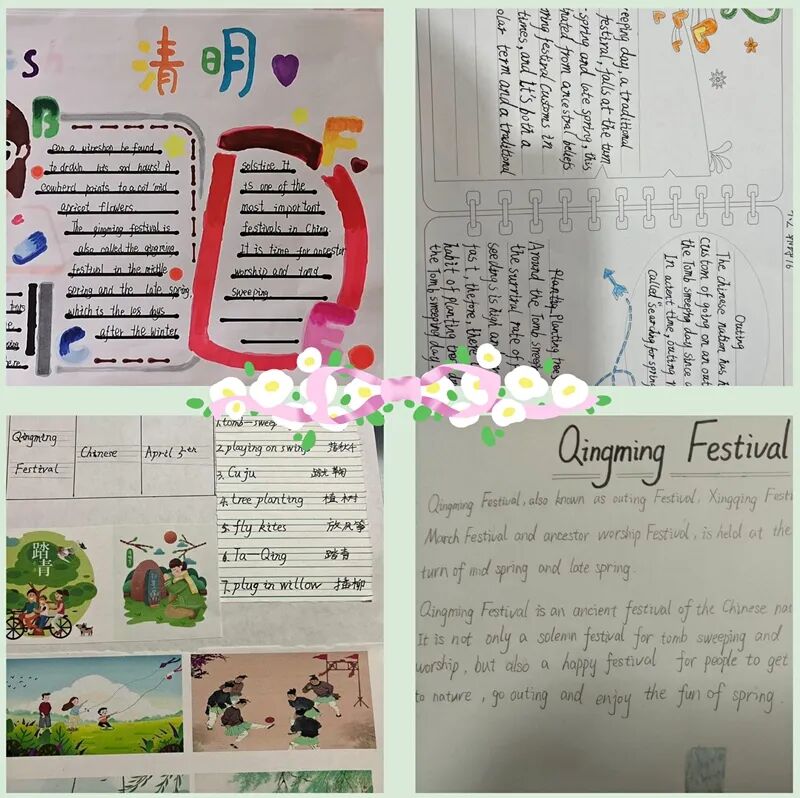 s 清明
B
can a wineshop be found
to drown his sad hours? A
cowherd points to a cot 'mid
apricot flowers.
The qingming festival is
also called the qingming
festival in the middle
spring and the late spring,
which is the 108 days
after the winter
C
F
solstice. It
is one of the
most important
festivals in China
It is time for ancestor
worship and tomb
sweeping.
E
eeping day, a traditional
festival, falls at the turn
spring and late spring, this
nated from ancestral beliefs
festival customs in
times, and it's both a
olar term and a traditional
Outing
The chinese nation has
custom of going on an out
the tomb sweeping day since a
In acient time, outing
called "searching for spring
Planting Planting trees
Around the Tomb sweep
the survival rate of
seedings is high an
fast, therefore, there
habit of planting trees
the Tomb sweeping day
Qingming Festival
Chinese
April
1. tomb-sweep
2. playing on swing 荡秋千
3. Cu ju 蹴鞠
4. tree planting 植树
5. fly kites 放风筝
6. Ta-Qing 踏青
7. plug in willow 插柳
踏青
Qingming Festival
Qingming Festival, also known as outing Festival, Xingqing Festi
March Festival and ancestor worship Festival, is held at the
turn of mid spring and late spring.
Qingming Festival is an ancient festival of the Chinese nat
It is not only a solemn festival for tomb sweeping and
worship, but also a happy festival for people to get
to nature, go outing and enjoy the fun of spring.